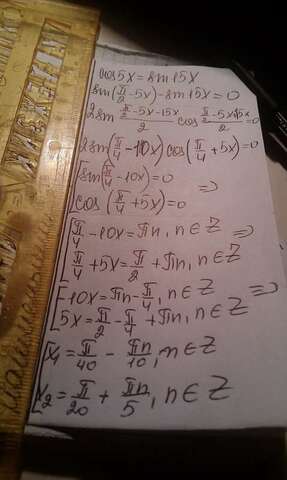 cos5x = sin15x
sin(π/2 - 5x) - sin15x = 0
2sin (π/2 - 5x - 15x)/2 cos (π/2 - 5x + 15x)/2 = 0
2sin(π/4 - 10x) cos(π/4 + 5x) = 0
[sin(π/4 - 10x) = 0
cos(π/4 + 5x) = 0 ⇒
[π/4 - 10x = πn, n∈Z ⇒
π/4 + 5x = π/2 + πn, n∈Z
[-10x = πn - π/4, n∈Z ⇒
5x = π/2 - π/4 + πn, n∈Z
[x₁ = π/40 - πn/10, n∈Z
x₂ = π/20 + πn/5, n∈Z